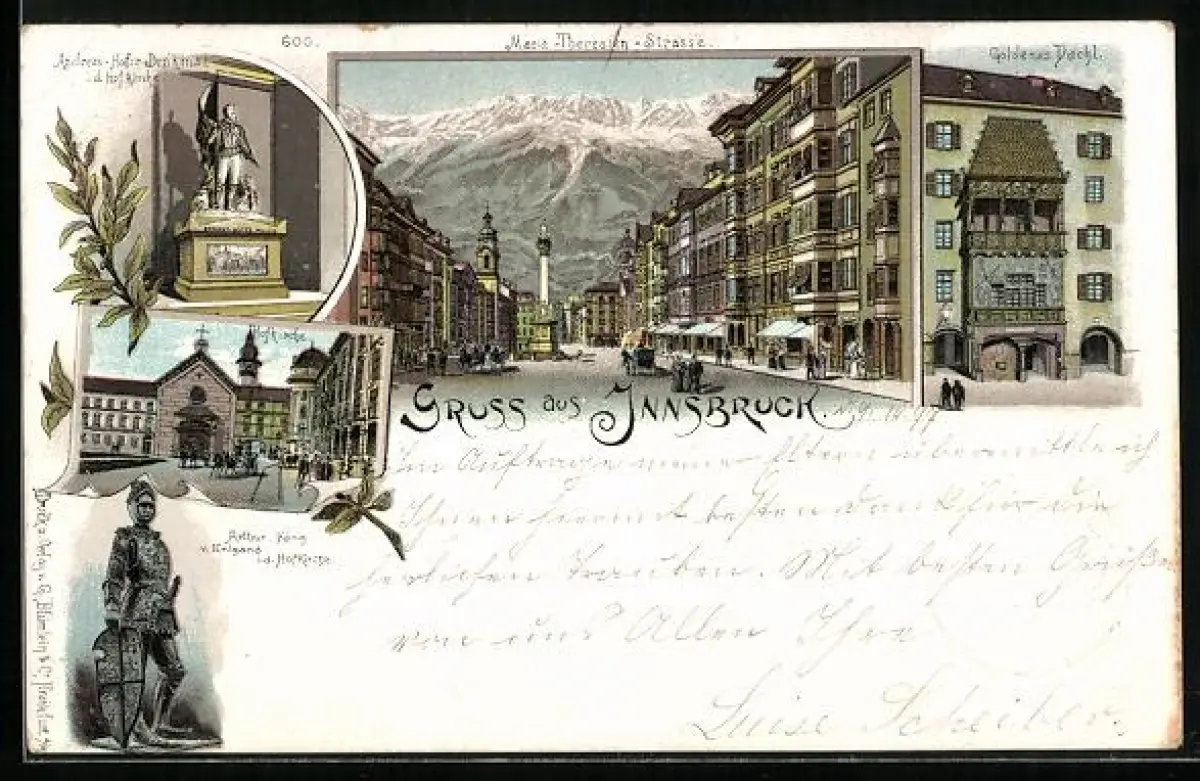 600.
Maria-Theresien-Strasse.
Goldenes Dachl.
Andreas-Hofer-Denkmal
i.d. Hofkirche
Hofkirche
GRUSS aus INNSBRUCK.
Im Auftrage meiner Eltern übermittle ich
Ihnen hiermit besten Dank für die
herlichen Trauben. Mit besten Grüßen
von uns Allen Ihre
Luise Scheiber.
Arthur König
v. England
i.d. Hofkirche.
Druck u. Verlag v. G. Blümlein & Co., Frankfurt